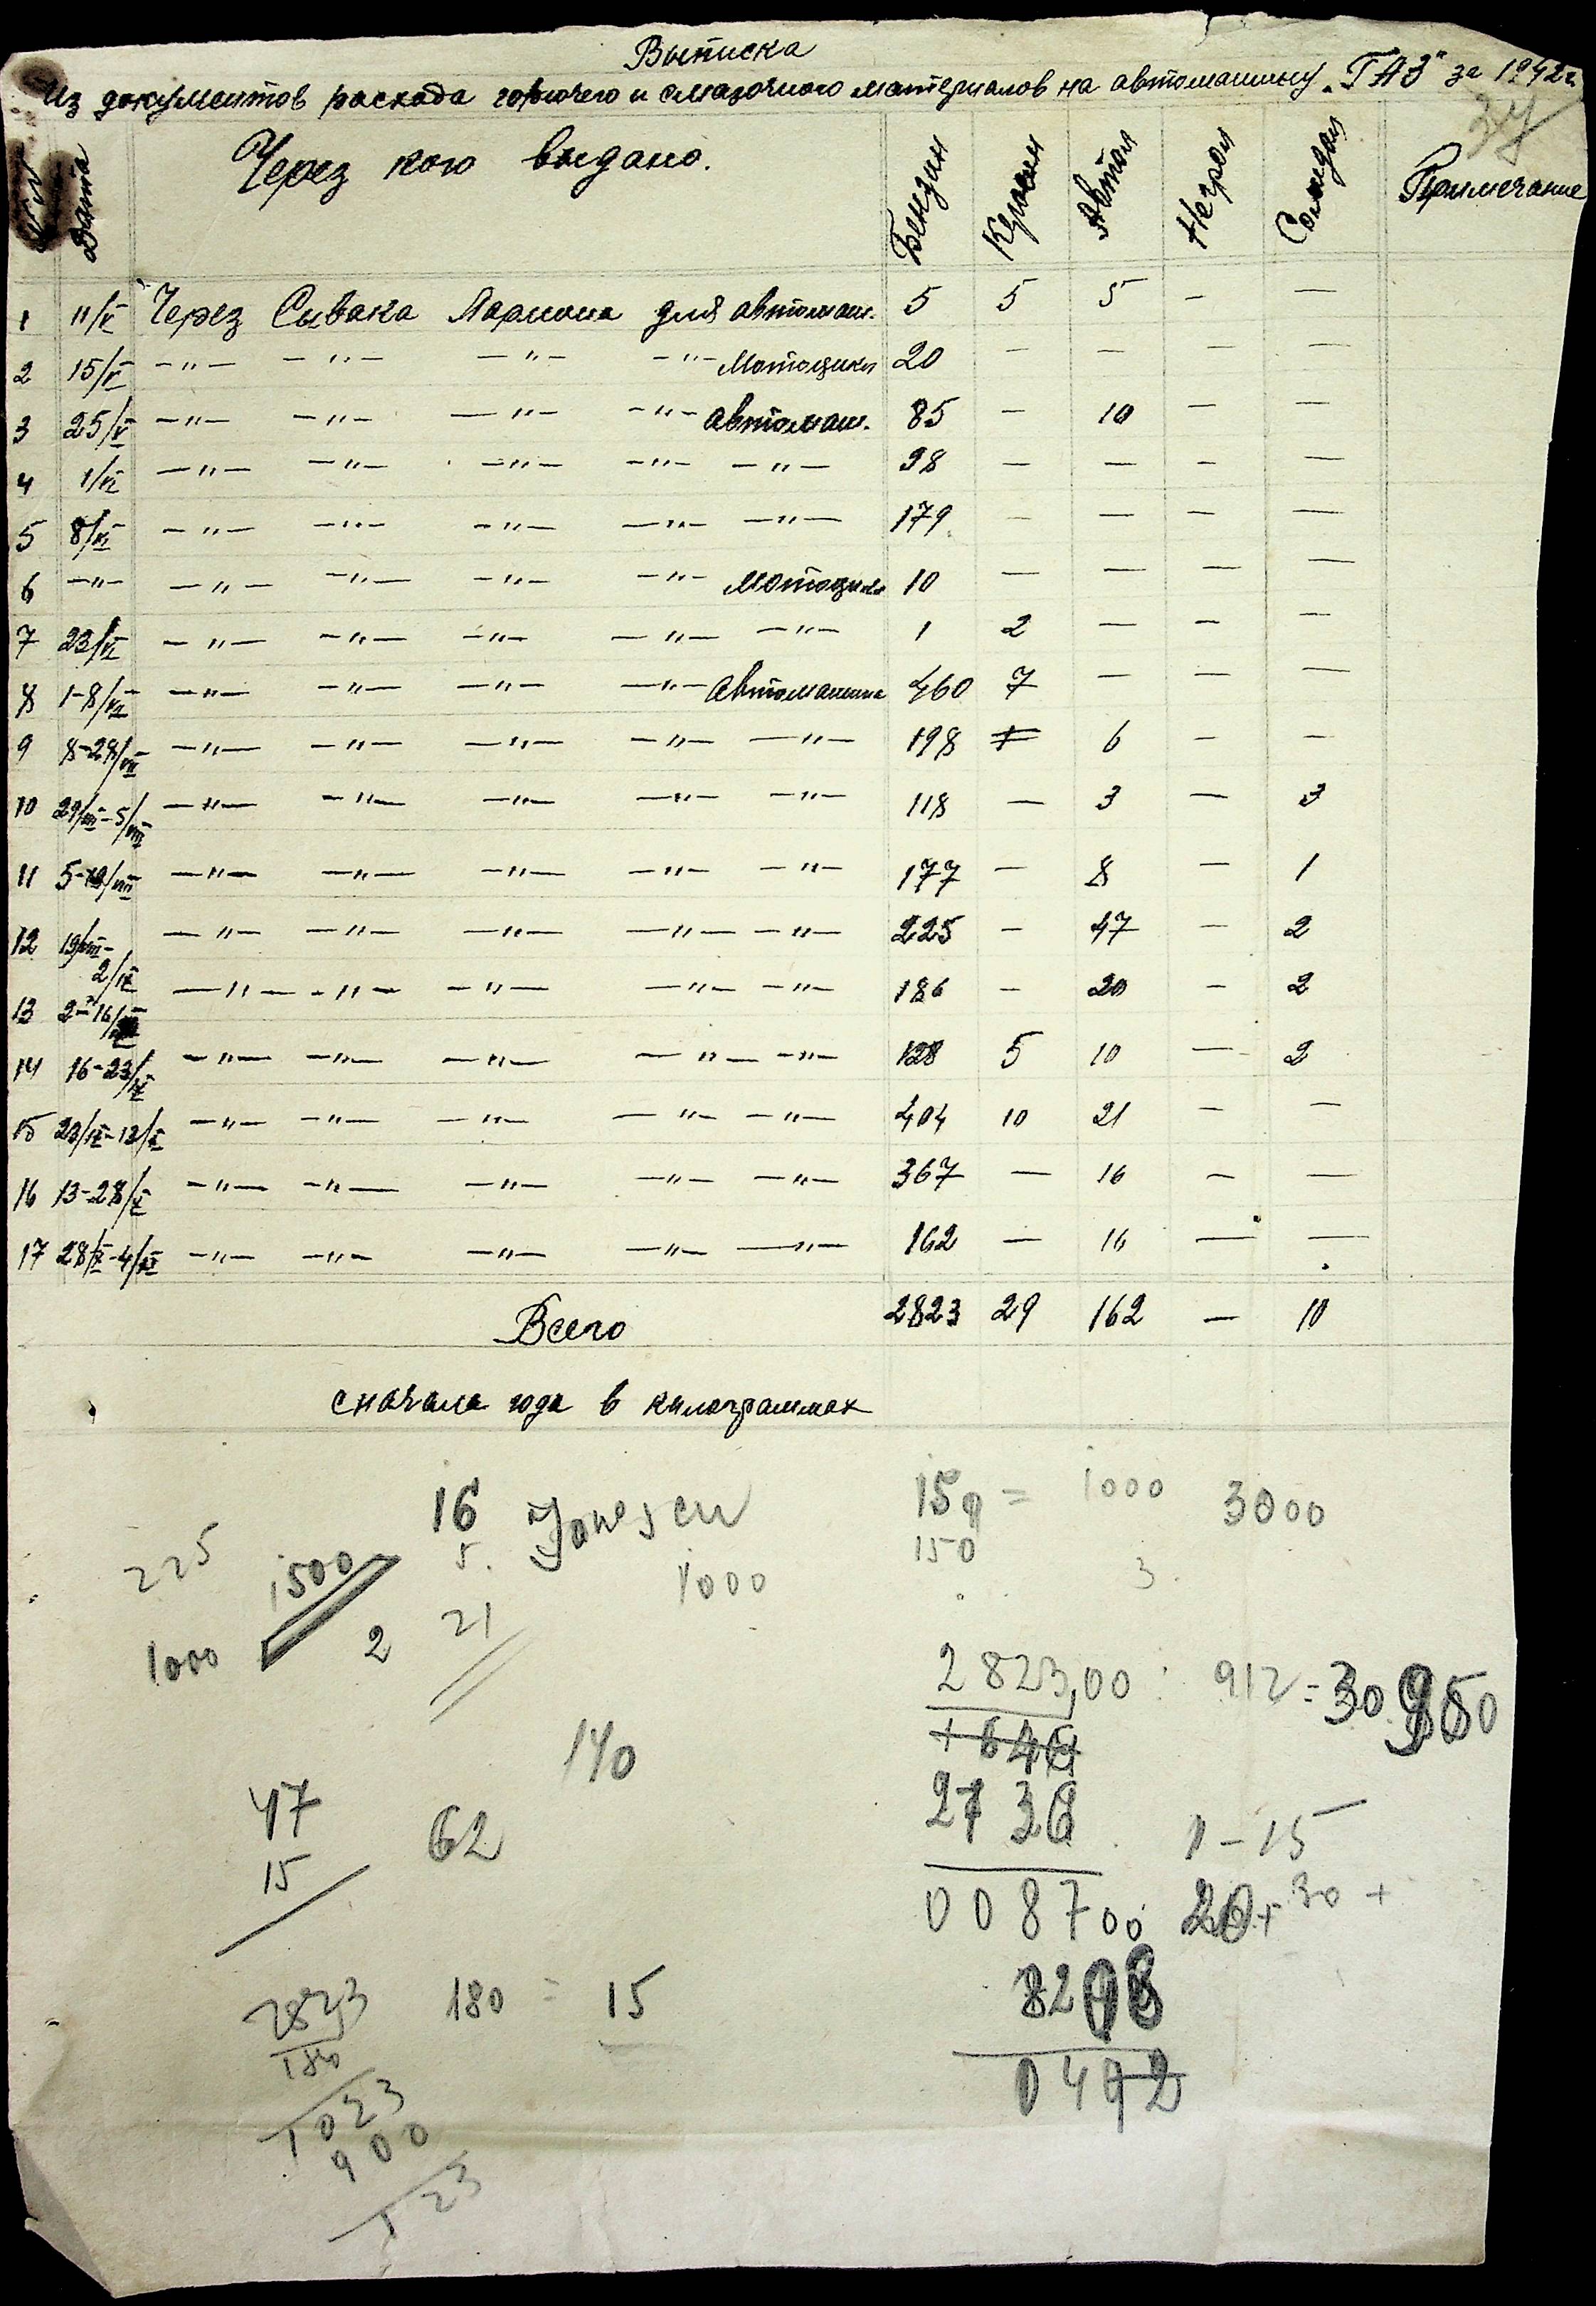 Выписка
Из документов расхода горючего и смазочного материалов на автомашину „ГАЗ" за 1942г.
37
Дата Через кого выдано. Бензин Керосин Автол Нигрол Солидол Примечание
1 11/V Через Сывака Лариона для автомаш. 5 5 5 - —
2 15/V —"— —"— —"— —"— Мотоцикл 20 — — — —
3 25/V —"— —"— —"— —"— автомаш. 85 — 10 — —
4 1/VI —"— —"— —"— —"— —"— 98 — — — —
5 8/VI —"— —"— —"— —"— —"— 179 — — — —
6 —"— —"— —"— —"— —"— Мотоцикл 10 — — — —
7 23/VI —"— —"— —"— —"— —"— 1 2 — — —
8 1-8/VII —"— —"— —"— —"— автомашина 460 7 — — —
9 8-28/VII —"— —"— —"— —"— —"— 198 — 6 — —
10 29/VII-5/VIII —"— —"— —"— —"— —"— 118 — 3 — 3
11 5-19/VIII —"— —"— —"— —"— —"— 177 — 8 — 1
12 19/VIII-2/IX —"— —"— —"— —"— —"— 225 — 47 — 2
13 2-16/IX —"— —"— —"— —"— —"— 186 — 20 — 2
14 16-23/IX —"— —"— —"— —"— —"— 128 5 10 — 2
15 23/IX-12/X —"— —"— —"— —"— —"— 404 10 21 — —
16 13-28/X —"— —"— —"— —"— —"— 367 — 16 — —
17 28/X-4/XI —"— —"— —"— —"— —"— 162 — 16 — —
Всего 2823 29 162 — 10
сначала года в килограммах
16 Jonescu 15g = 1000 3000
225 1500 5. 1000 150 3.
1000 2 21
2823,00 : 912 = 30950
140 + 646
47 62 2736 1-15
15
008700 20+30+
8208
2823 180 = 15
180 0492
1023
900
123